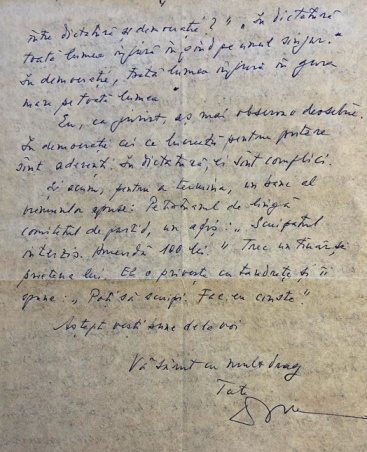 între dictatură și democrație?" „În dictatură
toată lumea înjură în gînd pe unul singur.
În democrație, toată lumea înjură în gura
mare pe toată lumea"
Eu, ca jurist, aș mai observa o deosebire.
În democrație cei ce lucrează pentru putere
sînt aderenți. În dictatură, ei sînt complici.
Și acum, pentru a termina, un banc al
vremurilor apuse: Pe trotuarul de lîngă
comitetul de partid, un afiș: „Scuipatul
interzis. Amendă 100 lei." Trec un tînăr și
prietena lui. El o privește cu tandrețe și îi
spune: „Poți să scuipi. Fac eu cinste"
Aștept vești bune de la voi
Vă sărut cu mult drag
Tata